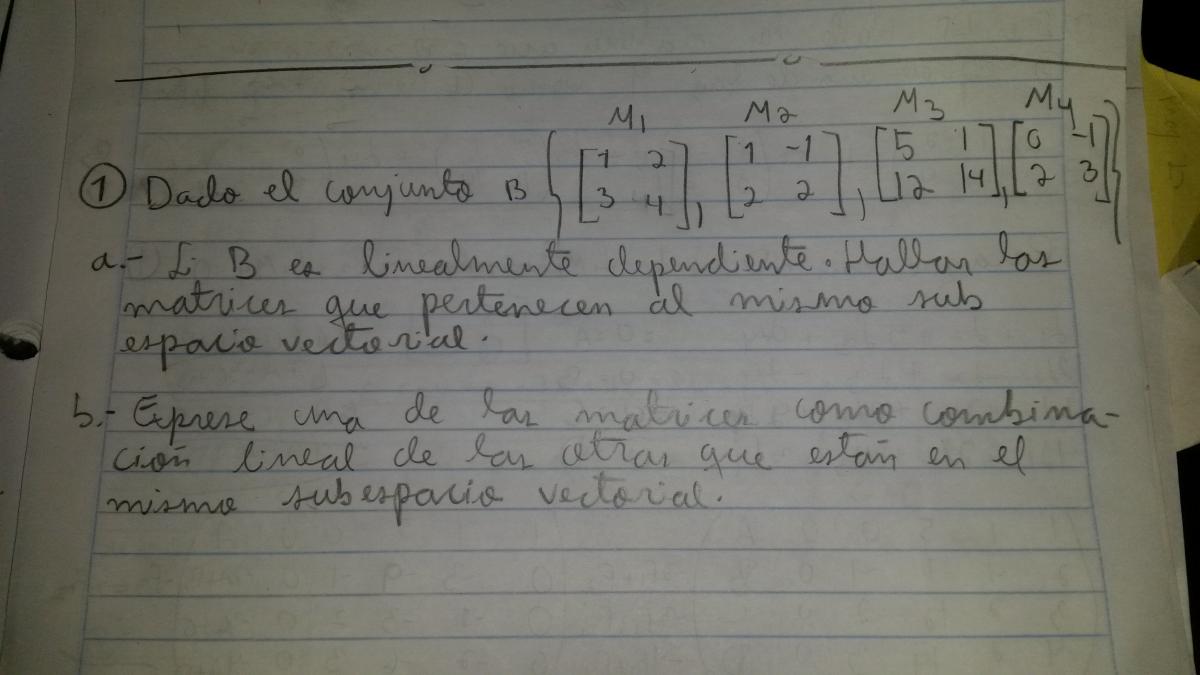 M1 M2 M3 M4
① Dado el conjunto B { [1 2 3 4], [1 -1 2 2], [5 1 12 14], [0 -1 2 3] }
a.- Si B es linealmente dependiente. Hallar las
matrices que pertenecen al mismo sub
espacio vectorial.
b.- Eprese una de las matrices como combina-
ción lineal de las otras que están en el
mismo subespacio vectorial.